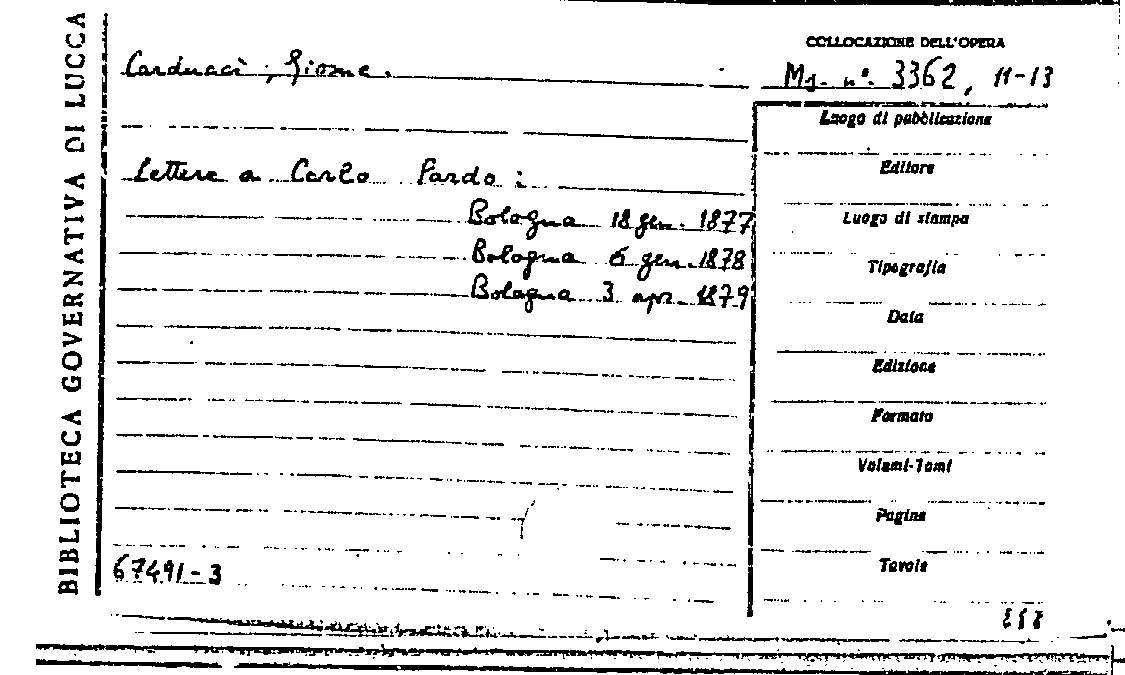 BIBLIOTECA GOVERNATIVA DI LUCCA
COLLOCAZIONE DELL'OPERA
Carducci, Giosue.
Ms. n°. 3362, 11-13
Lettere a Carlo Pardo:
Bologna 18 gen. 1877
Bologna 6 gen. 1878
Bologna 3 apr. 1879
Luogo di pubblicazione
Editore
Luogo di stampa
Tipografia
Data
Edizione
Formato
Volumi-Tomi
Pagine
Tavole
67491-3